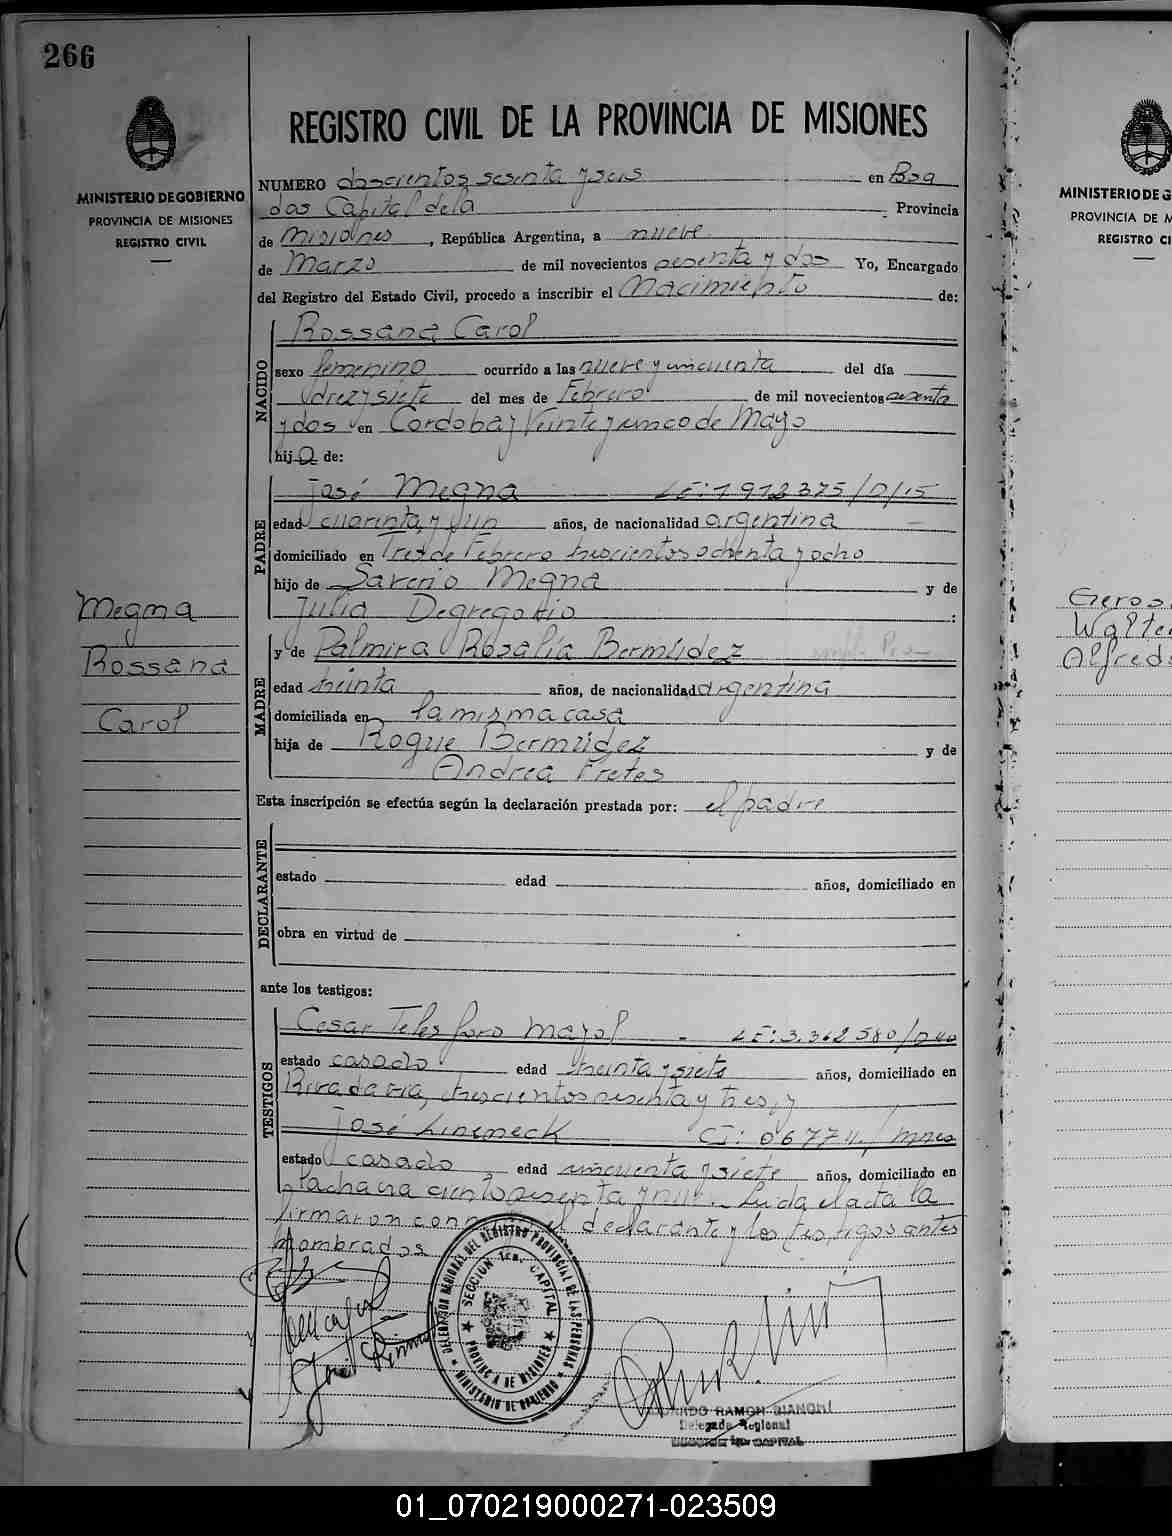 266
MINISTERIO DE GOBIERNO
PROVINCIA DE MISIONES
REGISTRO CIVIL
REGISTRO CIVIL DE LA PROVINCIA DE MISIONES
NUMERO doscientos sesenta y seis en Posa
das Capital de la Provincia
de Misiones, República Argentina, a nueve
de Marzo de mil novecientos sesenta y dos Yo, Encargado
del Registro del Estado Civil, procedo a inscribir el Nacimiento de:
NACIDO
Rossana Carol
sexo femenino ocurrido a las nueve y cincuenta del día
diez y siete del mes de Febrero de mil novecientos sesenta
y dos en Cordoba y Veinte y cinco de Mayo
hija de:
PADRE
José Megna LE: 1.912.375/D/15
edad cuarenta y un años, de nacionalidad argentina
domiciliado en Tres de Febrero trescientos ochenta y ocho
hijo de Saverio Megna y de
Julia Degregorio :
MADRE
y de Palmira Rosalía Bermúdez
edad treinta años, de nacionalidad argentina
domiciliada en la misma casa
hija de Roque Bermúdez y de
Andrea Fretes
Esta inscripción se efectúa según la declaración prestada por: el padre
DECLARANTE
estado edad años, domiciliado en
obra en virtud de
ante los testigos:
TESTIGOS
Cesar Telesforo Mayol LE: 3.362.580/D
estado casado edad treinta y siete años, domiciliado en
Rivadavia, trescientos sesenta y tres, y
José CI: 06774 / Mnes
estado casado edad cincuenta y siete años, domiciliado en
ciento sesenta y Leida el acta la
firmaron con el declarante y los testigos antes
nombrados
Megna
Rossana
Carol
DELEGACION REGIONAL DEL REGISTRO PROVINCIAL DE LAS PERSONAS
SECCION 1ra. CAPITAL
PROVINCIA DE MISIONES
MINISTERIO DE GOBIERNO
RAMON BIANCHI
Delegado Regional
SECCION 1ra CAPITAL
MINISTERIO DE G
PROVINCIA DE M
REGISTRO CI
Geros
Walte
Alfred
01_070219000271-023509